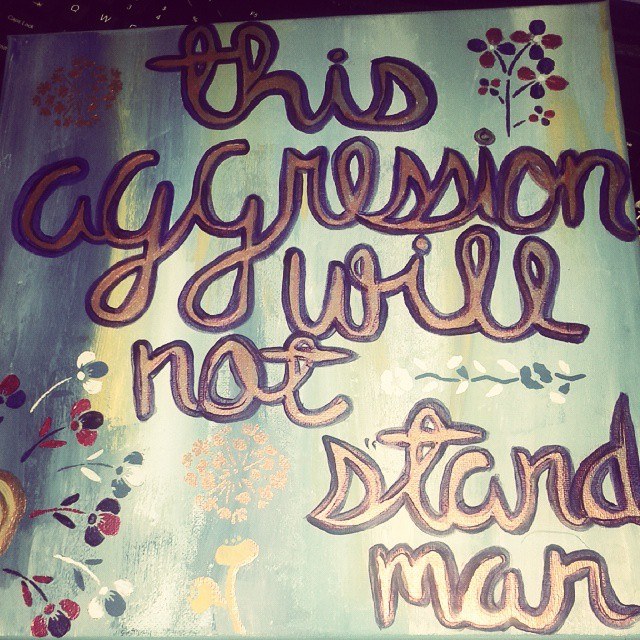 this
aggression
will
not
stand
man